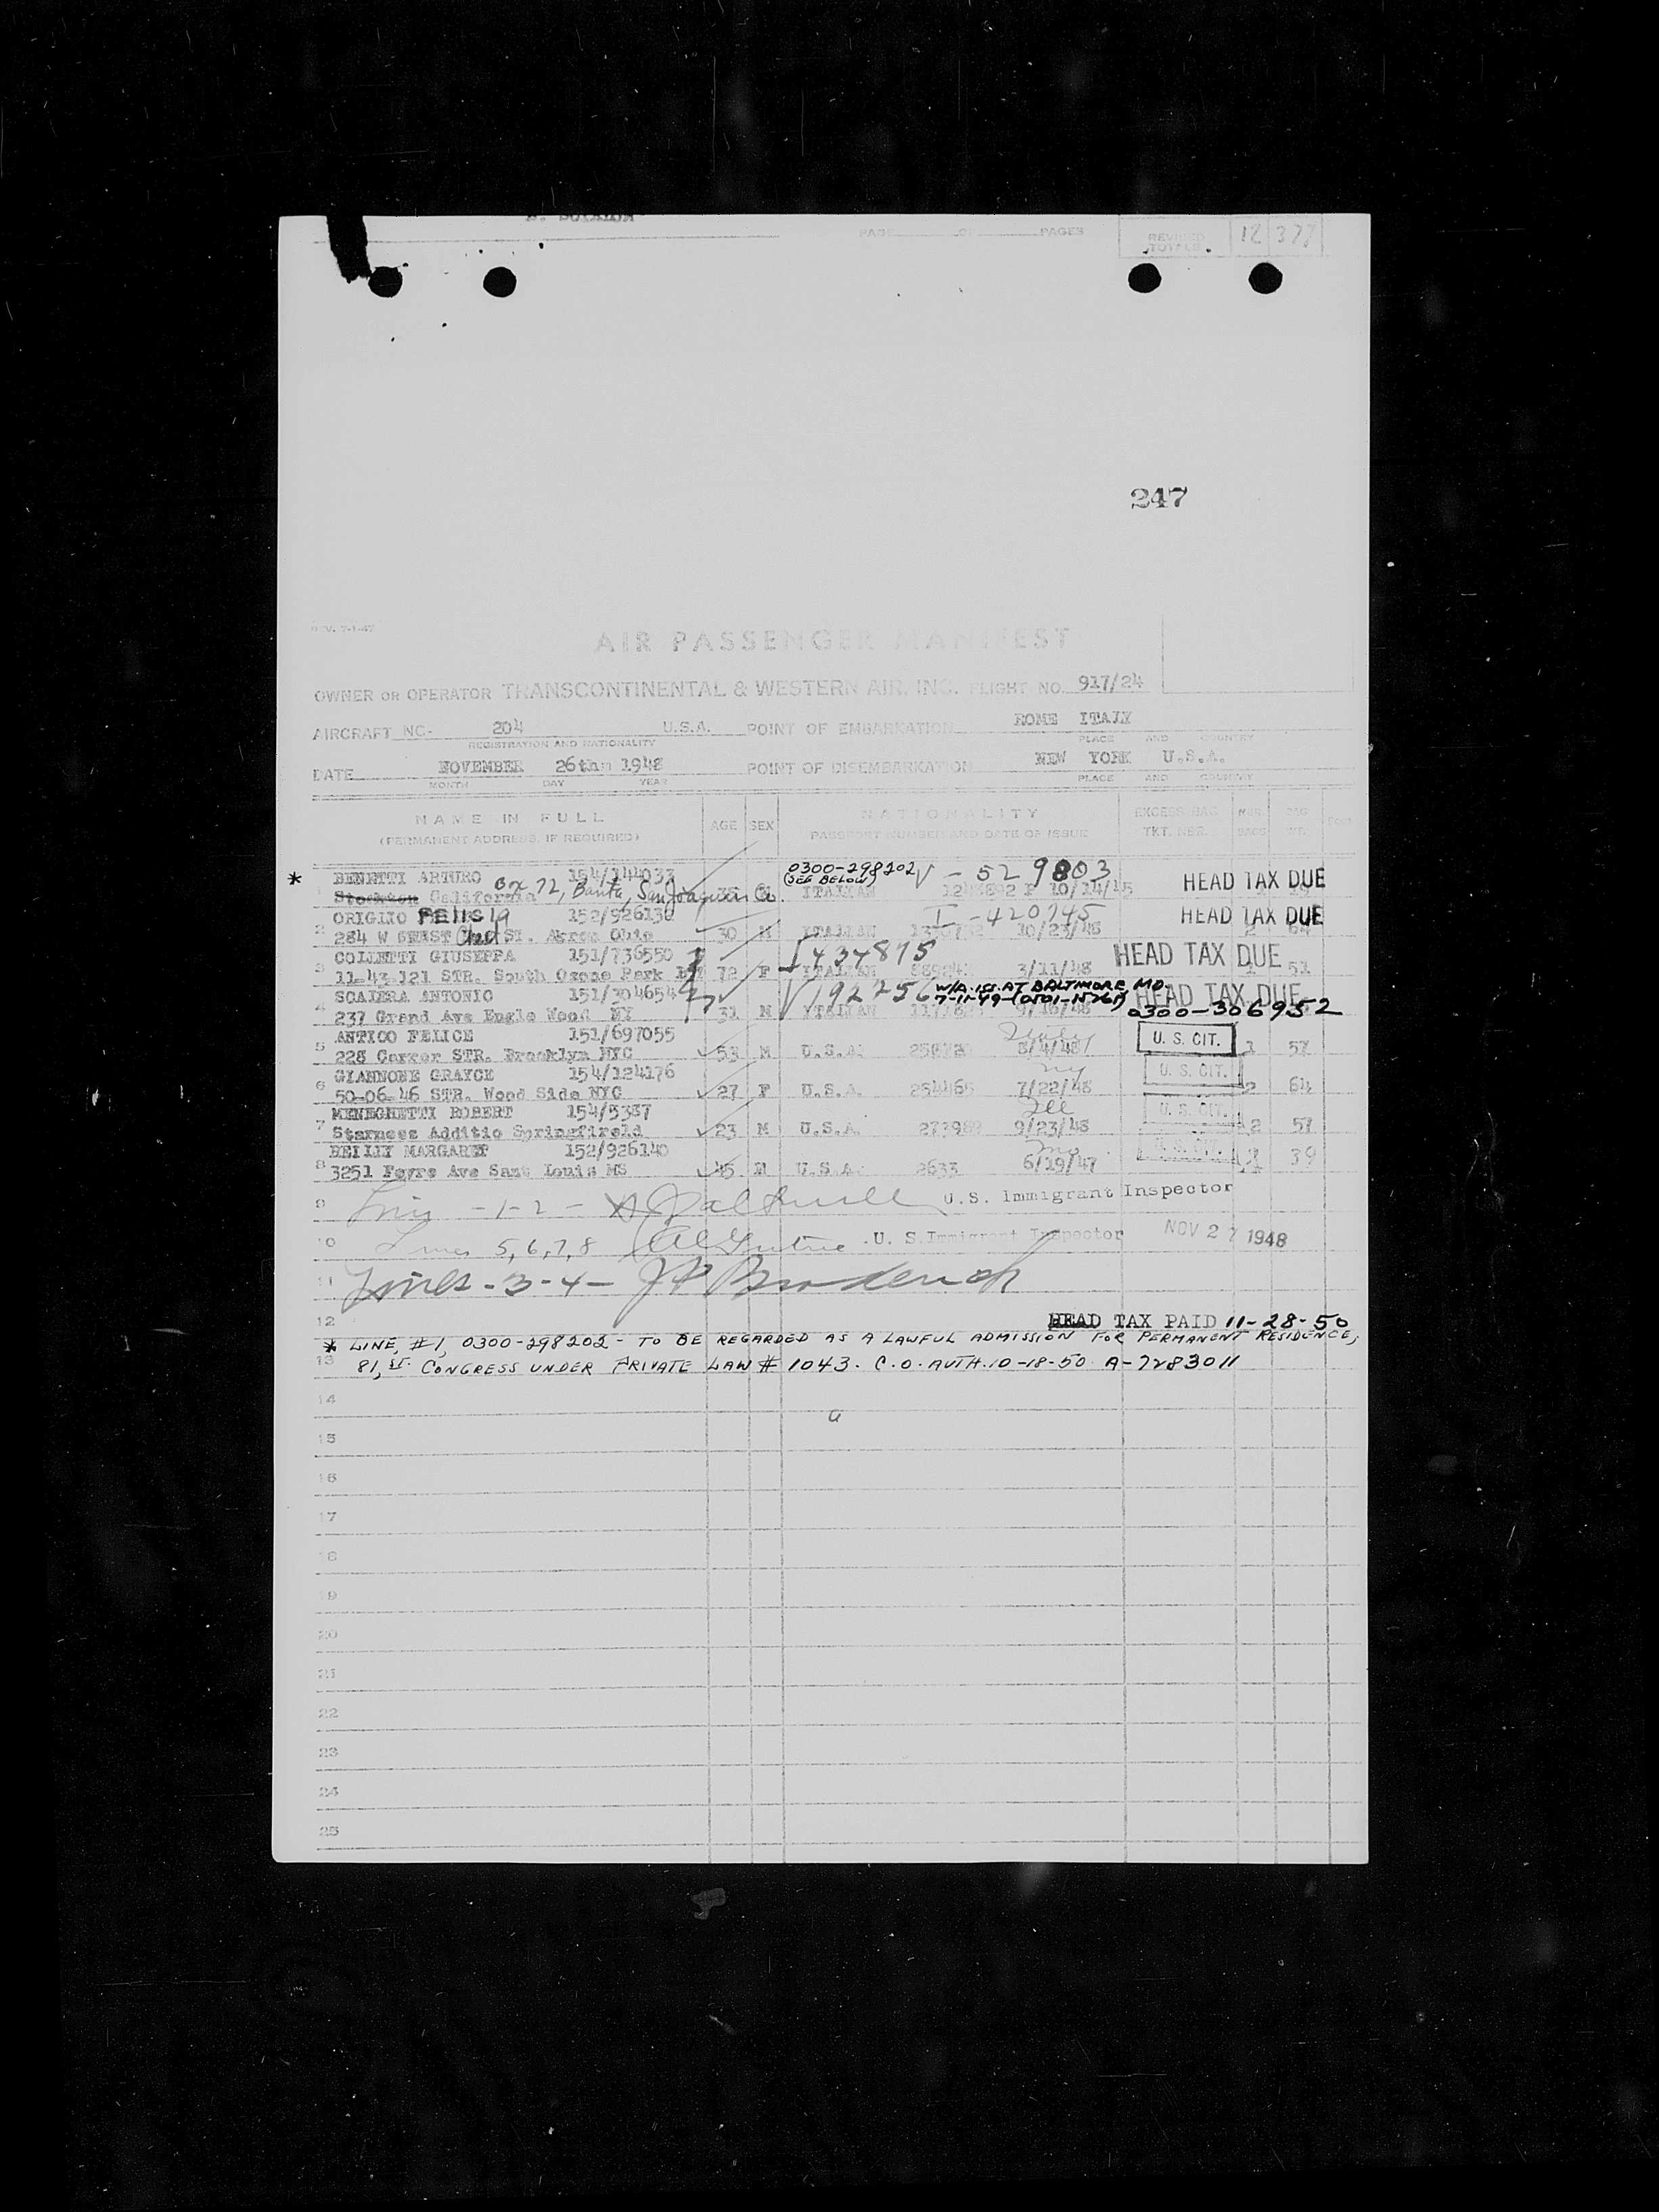 PAGE OF PAGES
REVISED TOTALS 12 377
247
REV. 7-1-47
AIR PASSENGER MANIFEST
OWNER OR OPERATOR TRANSCONTINENTAL & WESTERN AIR, INC. FLIGHT NO. 917/24
AIRCRAFT NC- 204 U.S.A. POINT OF EMBARKATION ROME ITALY
REGISTRATION AND NATIONALITY PLACE AND COUNTRY
DATE NOVEMBER 26th 1948 POINT OF DISEMBARKATION NEW YORK U.S.A.
MONTH DAY YEAR PLACE AND COUNTRY
NAME IN FULL AGE SEX NATIONALITY EXCESS BAG NBR. BAG
(PERMANENT ADDRESS, IF REQUIRED) PASSPORT NUMBER AND DATE OF ISSUE TKT. NBR. BAGS WT.
* BENETTI ARTURO 154/144033 0300-298202 (SEE BELOW) V - 529803 HEAD TAX DUE
1 Stockton California Box 72, Banta, San Joaquin Co. 35 M ITALIAN 10/14/45
ORIGLIO 152/926136 I - 420745 HEAD TAX DUE
2 284 W St. Akron Ohio 30 M ITALIAN 10/23/48 2 64
COLLETTI GIUSEPPA 151/736550 434875 HEAD TAX DUE
3 11-43-121 STR. South Ozone Park 72 F ITALIAN 3/11/48 1 51
SCAIERA ANTONIO 151/304654 V 192756 W/A iss AT BALTIMORE, MD. 7-11-49-(0501-15761) HEAD TAX DUE
4 237 Grand Ave Engle Wood NY 31 M ITALIAN 0300-306952
ANTICO FELICE 151/697055
5 228 Carrer STR. Brooklyn NYC 53 M U.S.A. 8/4/48 U. S. CIT. 1 57
GIANNONE GRAYCE 154/124176 NY
6 50-06-46 STR. Wood Side NYC 27 F U.S.A. 254465 7/22/48 U. S. CIT. 2 64
MENEGHETTI ROBERT 154/5387 Ill
7 Starness Additio Springfireld 23 M U.S.A. 9/23/48 U. S. CIT. 2 57
REILLY MARGARET 152/926140 Mo
8 3251 Feyre Ave Sant Louis MS 45 M U.S.A. 2633 6/19/47 1 39
9 Lines -1-2- U.S. Immigrant Inspector
10 Lines 5,6,7,8 U. S. Immigrant Inspector NOV 27 1948
11 Lines-3-4- J P Broderick
12 HEAD TAX PAID 11-28-50
* LINE, #1, 0300-298202 - TO BE REGARDED AS A LAWFUL ADMISSION FOR PERMANENT RESIDENCE,
13 81, ST. CONGRESS UNDER PRIVATE LAW # 1043. C.O. AUTH. 10-18-50 A-7283011
14
15
16
17
18
19
20
21
22
23
24
25